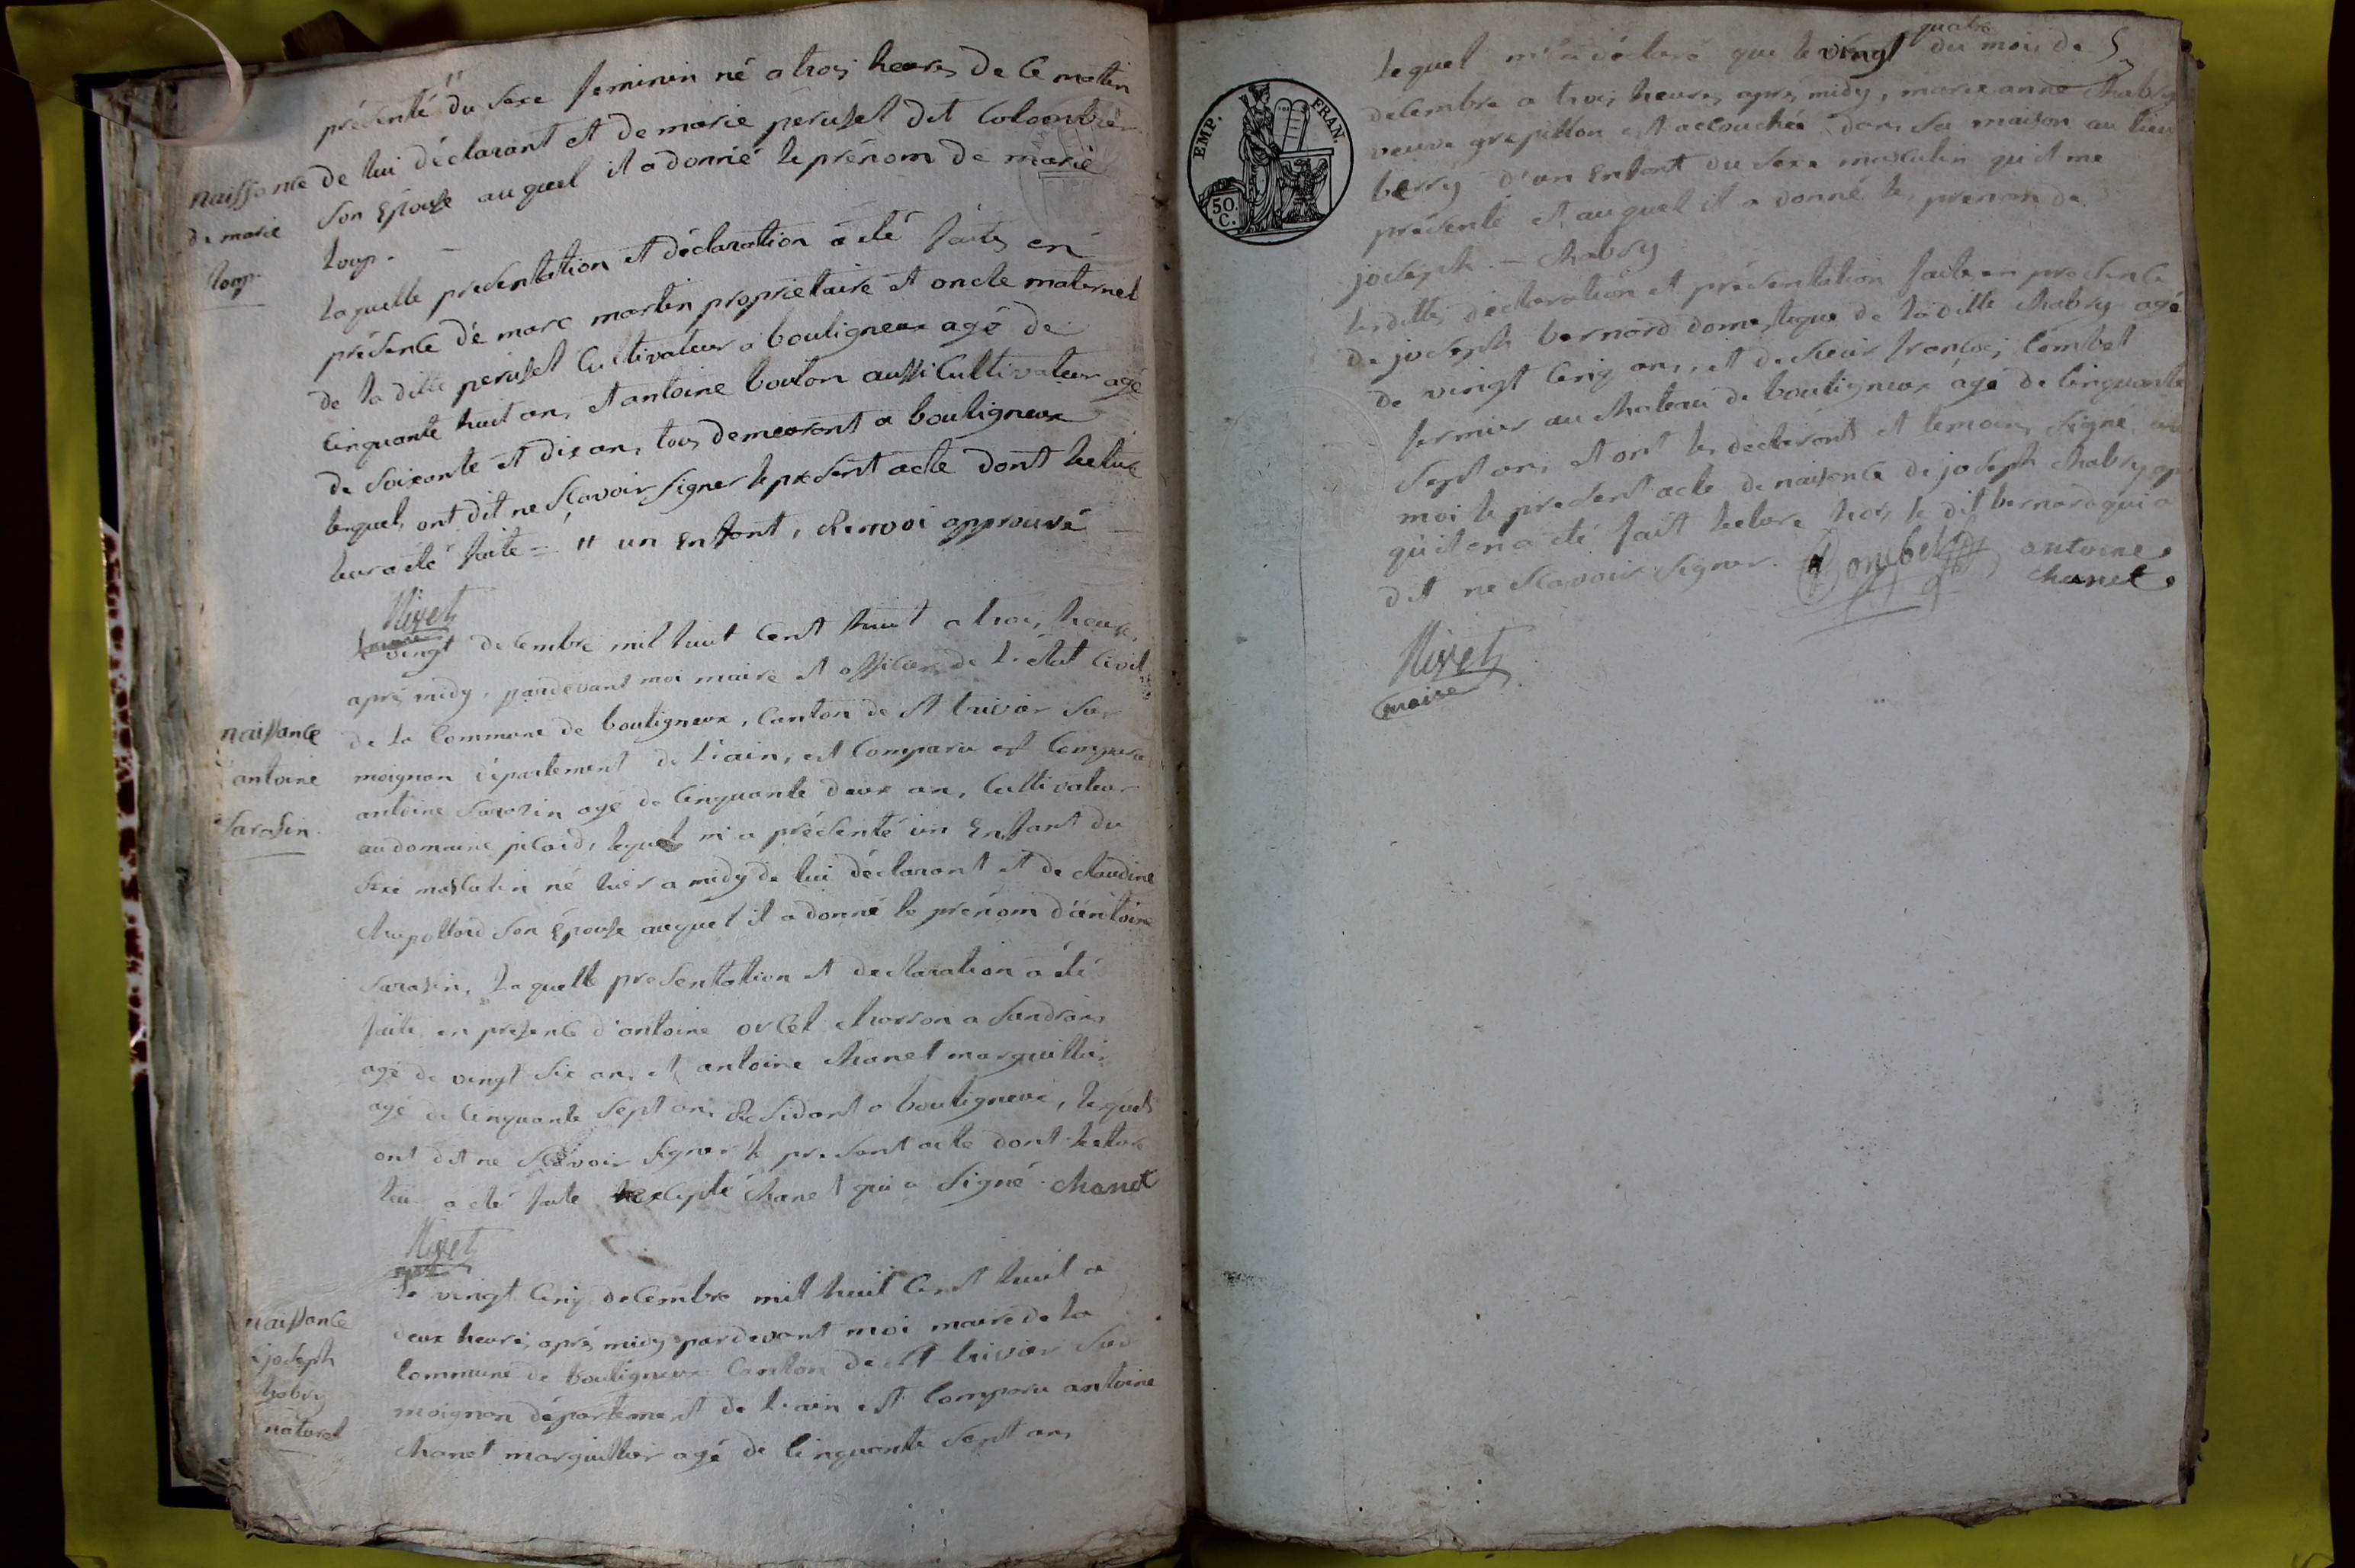 présenté " du sexe feminin né a trois heures de ce matin
naissance
de marie
loup.
de lui déclarant et de marie peruset dit Colombier
son Epouse auquel il a donné le prénom de marie
loup. —
laquelle presentation et déclaration a été faite en
présence dé marc martin proprietaire et oncle maternel
de la ditte peruset Cultivateur a bouligneux agé de
Cinquante huit ans, et antoine bouton aussi Cultivateur agé
de soixante et dix ans, tous demeurant a bouligneux
lesquels ont dit ne sçavoir signer le present acte dont lecture
leur a été faite = " un Enfant, Renvoi approuvé
Nivet
maire
naissance
antoine
sarasin.
le vingt decembre mil huit Cent huit a trois heures
après midy, pardevant moi maire et officier de l'état Civil
de la Commune de bouligneux, Canton de st trivier sur
moignan département de l'ain, est Comparu est Comparu
antoine sarasin agé de Cinquante deux ans, Cultivateur
au domaine picard, lequel m'a présenté un Enfant du
sexe masculin né hier a midy de lui déclarant et de claudine
son Épouse auquel il a donné le prénom d'antoine
sarasin, laquelle presentation et declaration a été
faite en présence d'antoine charron a sandrans
agé de vingt six ans, et antoine Chanet marguillier
agé de Cinquante sept ans, Residant a bouligneux, lesquels
ont dit ne sçavoir signer le present acte dont lecture
leur a été faite Excepté Chanet qui a signé. Chanet
Nivet
maire
naissance
joseph
Chabry
naturel
le vingt Cinq decembre mil huit Cent huit a
deux heures après midy pardevant moi maire de la
Commune de bouligneux Canton de st trivier sur
moignan département de l'ain est Comparu antoine
Chanet marguillier agé de Cinquante sept ans
5
quatre
lequel m'a déclaré que le vingt du mois de
décembre a trois heures après midy, marie anne Chabry
veuve grapillon est accouchée dans sa maison au lieu
berry d'un Enfant du sexe masculin qu'il me
présente et auquel il a donné le prenom de
joseph — Chabry
lesdittes déclaration et présentation faite en presence
de joseph bernard domestique de la ditte Chabry agé
de vingt Cinq ans, et de sieur françois Combet
fermier au chateau de bouligneux âgé de Cinquante
sept ans et ont les declarants et temoins signé avec
moi le present acte de naissance de joseph Chabry
qu'il en a été fait lecture hors le dit bernard qui a
dit ne sçavoir signer. Combet antoine
Chanet
Nivet
maire
EMP. FRAN.
50.
C.